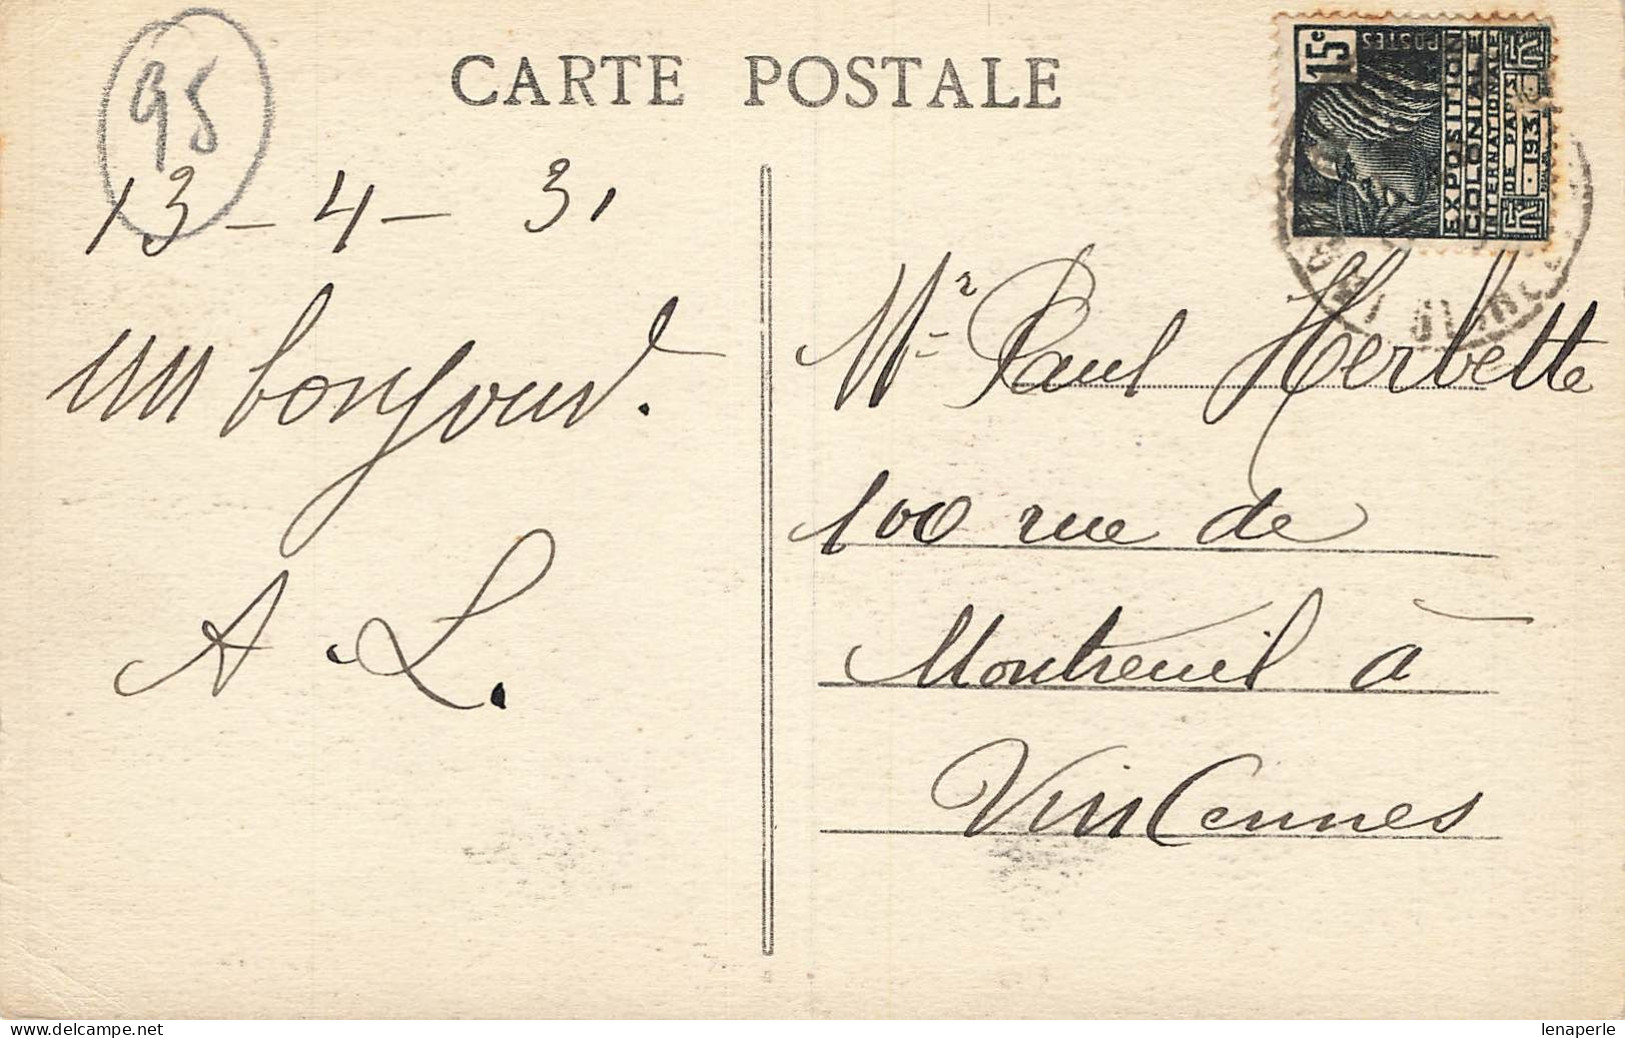 95
CARTE POSTALE
15c
POSTES
EXPOSITION
COLONIALE
INTERNATIONALE
DE PARIS
193
13 - 4 - 31
un bonjour.
A. L.
Mr Paul Herbette
100 rue de
Montreuil à
Vincennes
www.delcampe.net
lenaperle